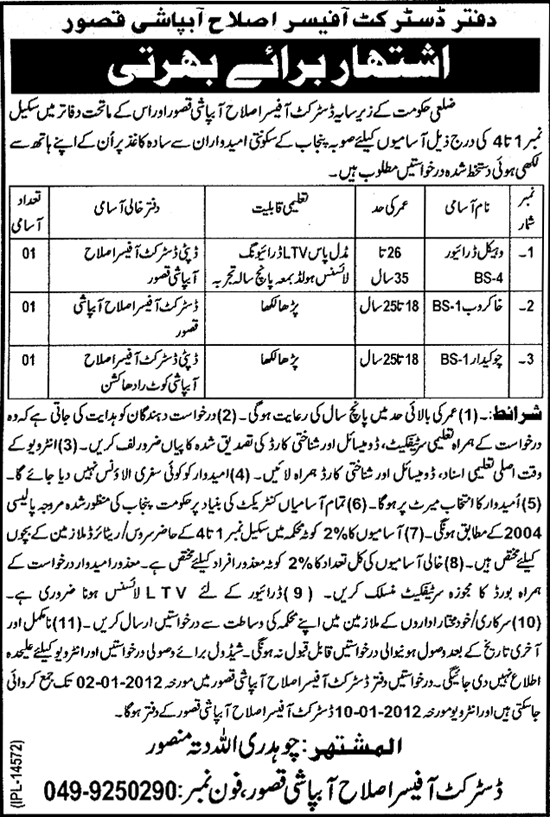 دفتر ڈسٹرکٹ آفیسر اصلاح آبپاشی قصور
اشتہار برائے بھرتی
ضلعی حکومت کے زیر سایہ ڈسٹرکٹ آفیسر اصلاح آبپاشی قصور اور اس کے ماتحت دفاتر میں سکیل
نمبر 1 تا 4 کی درج ذیل آسامیوں کیلئے صوبہ پنجاب کے سکونتی امیدواران سے سادہ کاغذ پر اُن کے اپنے ہاتھ سے
لکھی ہوئی دستخط شدہ درخواستیں مطلوب ہیں۔
نمبر شمار | نام آسامی | عمر کی حد | تعلیمی قابلیت | دفتر خالی آسامی | تعداد آسامی
1- | وہیکل ڈرائیور BS-4 | 26 تا 35 سال | مڈل پاس LTV ڈرائیونگ لائسنس ہولڈ بمعہ پانچ سالہ تجربہ | ڈپٹی ڈسٹرکٹ آفیسر اصلاح آبپاشی قصور | 01
2- | خاکروب BS-1 | 18 تا 25 سال | پڑھا لکھا | ڈسٹرکٹ آفیسر اصلاح آبپاشی قصور | 01
3- | چوکیدار BS-1 | 18 تا 25 سال | پڑھا لکھا | ڈپٹی ڈسٹرکٹ آفیسر اصلاح آبپاشی کوٹ رادھا کشن | 01
شرائط:۔ (1) عمر کی بالائی حد میں پانچ سال کی رعایت ہوگی۔ (2) درخواست دہندگان کو ہدایت کی جاتی ہے کہ وہ
درخواست کے ہمراہ تعلیمی سرٹیفکیٹ، ڈومیسائل اور شناختی کارڈ کی تصدیق شدہ کاپیاں ضرور لف کریں۔ (3) انٹرویو کے
وقت اصلی تعلیمی اسناد، ڈومیسائل اور شناختی کارڈ ہمراہ لائیں۔ (4) امیدوار کو کوئی سفری الاؤنس نہیں دیا جائے گا۔
(5) اُمیدوار کا انتخاب میرٹ پر ہوگا۔ (6) تمام آسامیاں کنٹریکٹ کی بنیاد پر حکومت پنجاب کی منظور شدہ مروجہ پالیسی
2004 کے مطابق ہونگی۔ (7) آسامیوں کا 2% کوٹہ محکمہ میں سکیل نمبر 1 تا 4 کے حاضر سروس/ریٹائرڈ ملازمین کے بچوں
کیلئے مختص ہیں۔ (8) خالی آسامیوں کی کل تعداد کا 2% کوٹہ معذور افراد کیلئے مختص ہے۔ معذور امیدوار درخواست کے
ہمراہ بورڈ کا مجوزہ سرٹیفکیٹ منسلک کریں۔ (9) ڈرائیور کے لئے LTV لائسنس ہونا ضروری ہے۔
(10) سرکاری/خودمختار اداروں کے ملازمین میں اپنے محکمہ کی وساطت سے درخواستیں ارسال کریں۔ (11) نامکمل اور
آخری تاریخ کے بعد وصول ہونیوالی درخواستیں قابل قبول نہ ہونگی۔ شیڈول برائے وصولی درخواستیں اور انٹرویو کیلئے علیحدہ
اطلاع نہیں دی جائیگی۔ درخواستیں دفتر ڈسٹرکٹ آفیسر اصلاح آبپاشی قصور میں مورخہ 02-01-2012 تک جمع کروائی
جاسکتی ہیں اور انٹرویو مورخہ 10-01-2012 ڈسٹرکٹ آفیسر اصلاح آبپاشی قصور کے دفتر ہوگا۔
المشتہر: چوہدری اللہ دتہ منصور
ڈسٹرکٹ آفیسر اصلاح آبپاشی قصور، فون نمبر: 049-9250290
(IPL-14572)